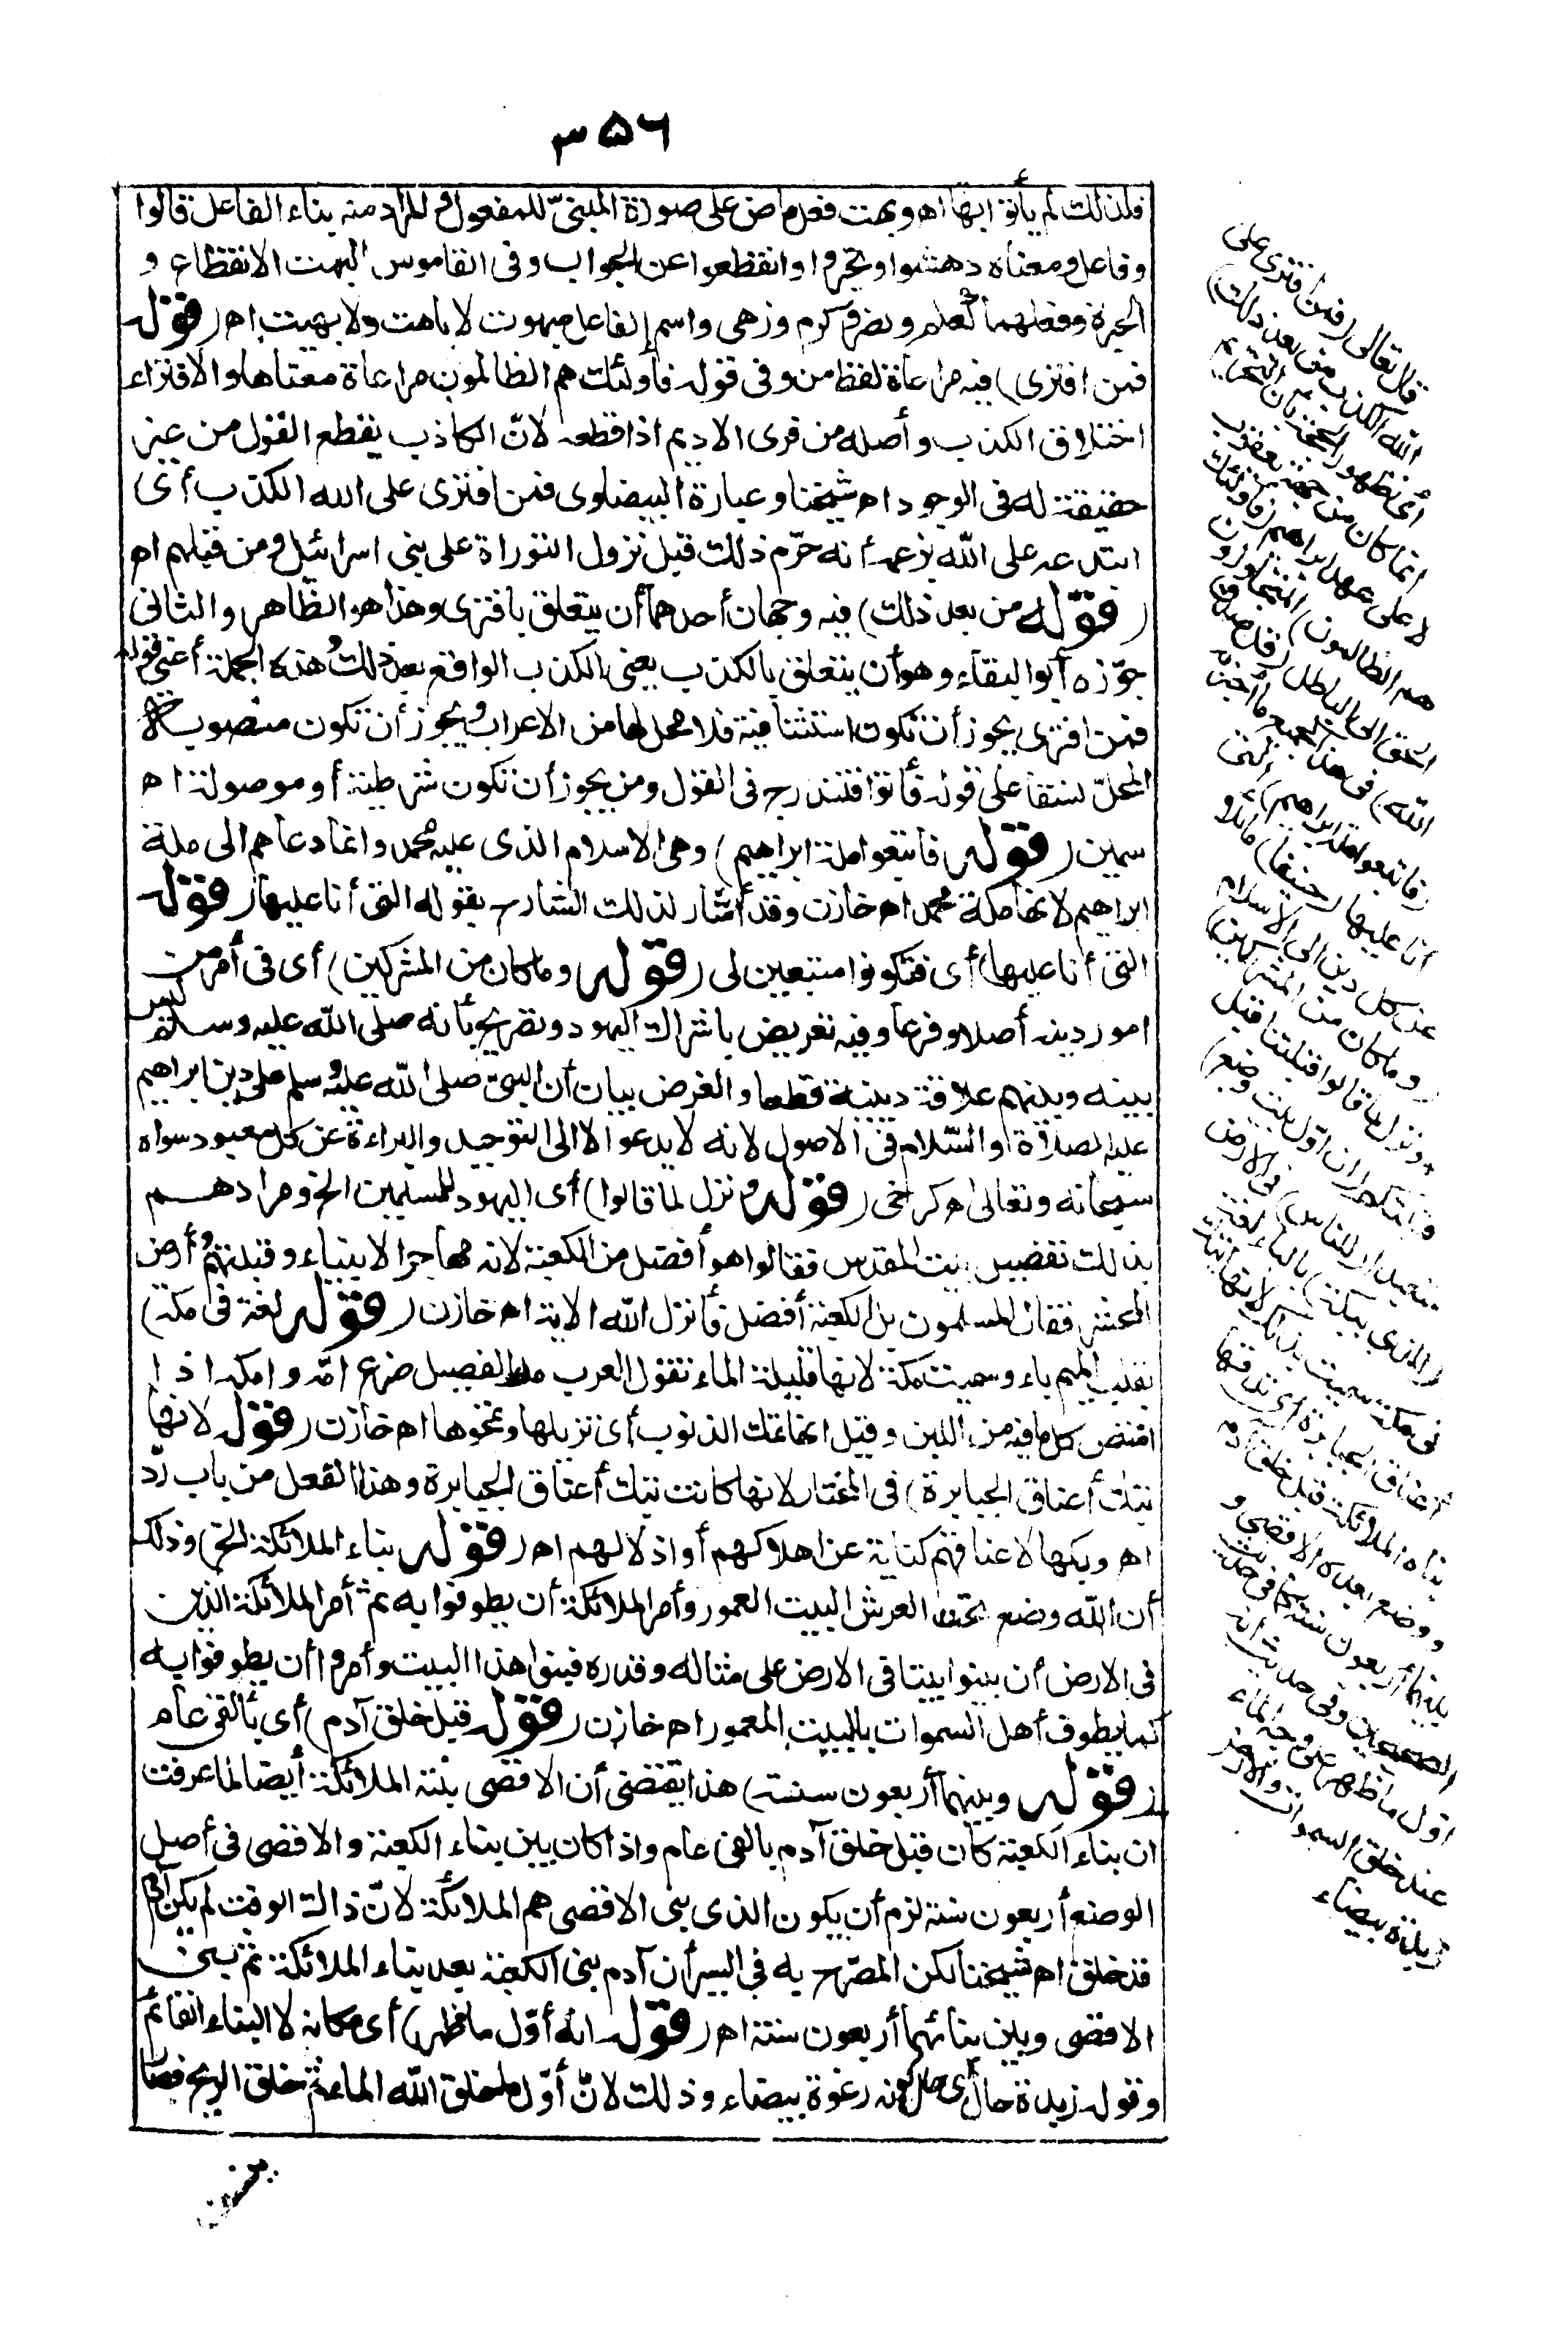 ٣٥٦
فلذلك لم يأتوا بها اه وبهت فعل ماض على صورة المبنىّ للمفعول والمراد منه بناء الفاعل قالوا
وفاعل ومعناه دهشوا وتحيروا وانقطعوا عن الجواب وفى القاموس البهت الانقطاع و
الحيرة وفعلهما كعلم ونصر وكرم وزهى واسم الفاعل مبهوت لا باهت ولا بهيت اه (قوله
فمن افترى) فيه مراعاة لفظ من وفى قوله فأولئك هم الظالمون مراعاة معناها والافتراء
اختلاق الكذب وأصله من فرى الاديم اذا قطعه لانّ الكاذب يقطع القول من غير
حقيقة له فى الوجود اه شيخنا وعبارة البيضاوى فمن افترى على الله الكذب أى
ابتدعه على الله بزعمه أنه حرّم ذلك قبل نزول التوراة على بنى اسرائيل ومن قبلهم اه
(قوله من بعد ذلك) فيه وجهان أحدهما أن يتعلق بافترى وهذا هو الظاهر والثانى
جوّزه أبو البقاء وهو أن يتعلق بالكذب يعنى الكذب الواقع بعد ذلك وهذه الجملة أعنى قوله
فمن افترى يجوز أن تكون استئنافية فلا محل لها من الاعراب ويجوز أن تكون منصوبة
المحلّ نسقا على قوله فأتوا فتندرج فى القول ومن يجوز أن تكون شرطية أو موصولة اه
سمين (قوله فاتبعوا ملة ابراهيم) وهى الاسلام الذى عليه محمد وانما دعاهم الى ملة
ابراهيم لانها ملة محمد اه خازن وقد أشار لذلك الشارح بقوله التى أنا عليها (قوله
التى أنا عليها) أى فتكونوا متبعين لى (قوله وما كان من المشركين) أى فى أمر من
امور دينه أصلا وفرعا وفيه تعريض باشراك اليهود وتصريح بأنه صلى الله عليه وسلم ليس
بينه وبينهم علاقة دينية قطعا والغرض بيان أن النبىّ صلى الله عليه وسلم على دين ابراهيم
عليه الصلاة والسلام فى الاصول لانه لا يدعو الا الى التوحيد والبراءة عن كل معبود سواه
سبحانه وتعالى اه كرخى (قوله ونزل لما قالوا) أى اليهود للمسلمين الخ ومرادهم
بذلك تفضيل بيت المقدس فقالوا هو أفضل من الكعبة لانه مهاجر الانبياء وقبلتهم وأرض
المحشر فقال المسلمون بل الكعبة أفضل فأنزل الله الاية اه خازن (قوله لغة فى مكة)
بقلب الميم باء وسميت مكة لانها قليلة الماء تقول العرب مك الفصيل ضرع امّه وامكه اذا
امتص كل ما فيه من اللبن وقيل انها تمك الذنوب أى تزيلها وتمحوها اه خازن (قوله لانها
تبك أعناق الجبابرة) فى المختار لانها كانت تبك أعناق الجبابرة وهذا الفعل من باب ردّ
اه وبكها لاعناقهم كناية عن اهلاكهم أو اذلالهم اه (قوله بناء الملائكة الخ) وذلك
أن الله وضع تحت العرش البيت المعمور وأمر الملائكة أن يطوفوا به ثم أمر الملائكة الذين
فى الارض أن يبنوا بيتا فى الارض على مثاله وقدره فبنوا هذا البيت وأمروا أن يطوفوا به
كما يطوف أهل السموات بالبيت المعمور اه خازن (قوله قبل خلق آدم) أى بألفى عام
(قوله وبينهما أربعون سنة) هذا يقتضى أن الاقصى بنته الملائكة أيضا لما عرفت
ان بناء الكعبة كان قبل خلق آدم بالفى عام واذا كان بين بناء الكعبة والاقصى فى أصل
الوضع أربعون سنة لزم أن يكون الذى بنى الاقصى هم الملائكة لانّ ذالك الوقت لم يكن آدم
قد خلق اه شيخنا لكن المصرّح به فى السير أن آدم بنى الكعبة بعد بناء الملائكة ثم بنى
الاقصى وبين بنائهما أربعون سنة اه (قوله انه أوّل ما ظهر) أى مكانه لا البناء القائم
وقوله زبدة حال أى حال كونه رغوة بيضاء وذلك لانّ أوّل ما خلق الله الماء ثم خلق الريح فصا
قال تعالى (فمن افترى على
الله الكذب من بعد ذلك)
أى ظهور الحجة بأن التحريم
انما كان من جهة يعقوب
لا على عهد ابراهيم (فأولئك
هم الظالمون) المتجاوزون
الحق الى الباطل (قل صدق
الله) فى هذا كجميع ما أخبر به
(فاتبعوا ملة ابراهيم) التى
أنا عليها (حنيفا) مائلا
عن كل دين الى الاسلام
(وما كان من المشركين)
ونزل لما قالوا قبلتنا قبل
قبلتكم (ان أوّل بيت وضع)
متعبدا (للناس) فى الارض
(للذى ببكة) بالباء لغة
فى مكة سميت بذلك لانها تبك
أعناق الجبابرة أى تدقها
بناه الملائكة قبل خلق آدم
ووضع بعده الاقصى و
بينهما أربعون سنة كما فى حديث
الصحيحين وفى حديث انه
اوّل ما ظهر على وجه الماء
عند خلق السموات والارض
زبدة بيضاء